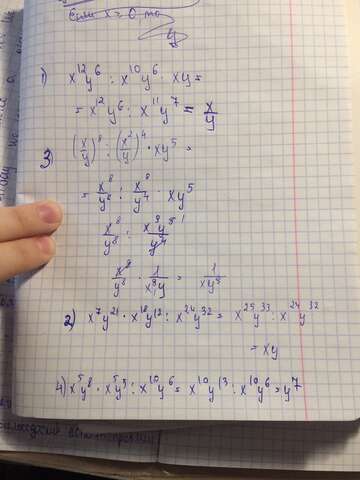 Если x = 0, то
y
1) x¹²y⁶ : x¹⁰y⁶ · xy =
= x¹²y⁶ : x¹¹y⁷ = x/y
3) (x/y)⁸ : (x²/y)⁴ · xy⁵ =
= x⁸/y⁸ : x⁸/y⁴ · xy⁵
x⁸/y⁸ : x⁹y⁵ ¹/y⁴
x⁸/y⁸ · 1/x⁹y = 1/xy⁹
2) x⁷y²¹ · x¹⁸y¹² : x²⁴y³² = x²⁵y³³ : x²⁴y³²
= xy
4) x⁵y⁸ · x⁵y⁵ : x¹⁰y⁶ = x¹⁰y¹³ : x¹⁰y⁶ = y⁷